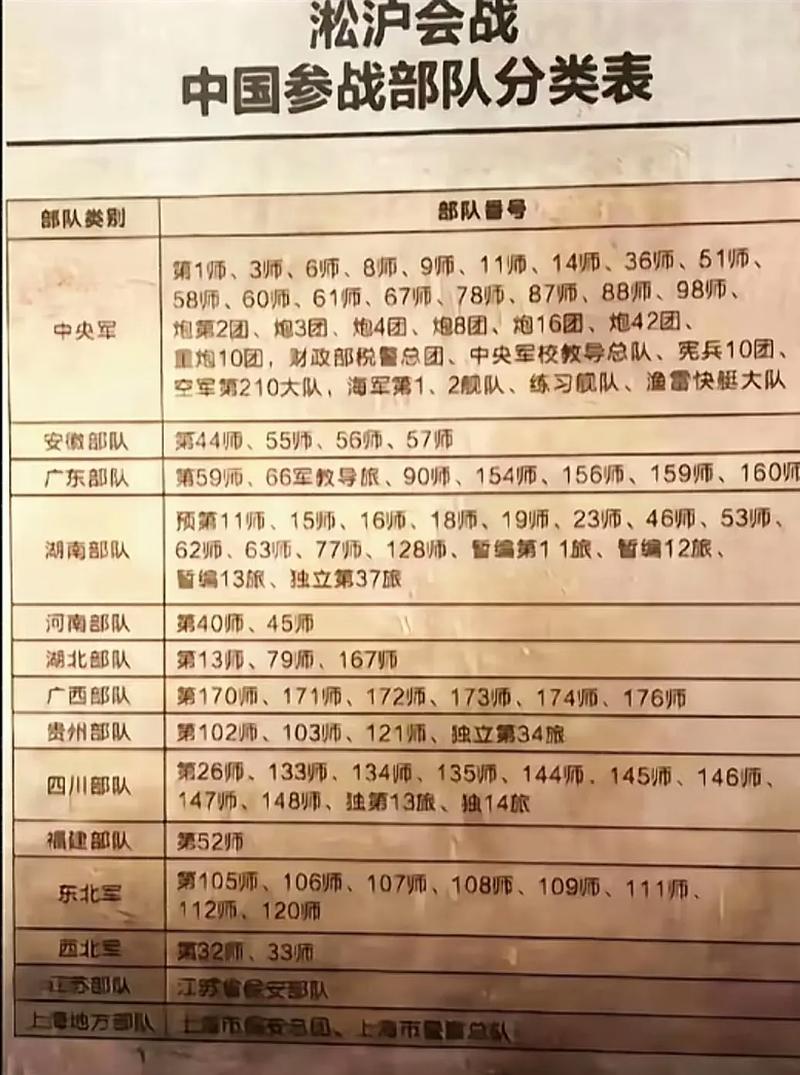 淞沪会战
中国参战部队分类表
部队类别 部队番号
中央军
第1师、3师、6师、8师、9师、11师、14师、36师、51师、
58师、60师、61师、67师、78师、87师、88师、98师、
炮第2团、炮3团、炮4团、炮8团、炮16团、炮42团、
重炮10团，财政部税警总团、中央军校教导总队、宪兵10团、
空军第210大队，海军第1、2舰队、练习舰队、渔雷快艇大队
安徽部队 第44师、55师、56师、57师
广东部队 第59师、66军教导旅、90师、154师、156师、159师、160师
湖南部队
预第11师、15师、16师、18师、19师、23师、46师、53师、
62师、63师、77师、128师、暂编第11旅、暂编12旅、
暂编13旅、独立第37旅
河南部队 第40师、45师
湖北部队 第13师、79师、167师
广西部队 第170师、171师、172师、173师、174师、176师
贵州部队 第102师、103师、121师、独立第34旅
四川部队
第26师、133师、134师、135师、144师、145师、146师、
147师、148师、独第13旅、独14旅
福建部队 第52师
东北军
第105师、106师、107师、108师、109师、111师、
112师、120师
西北军 第32师、33师
江苏部队 江苏省保安部队
上海地方部队 上海市保安总团、上海市警察总队